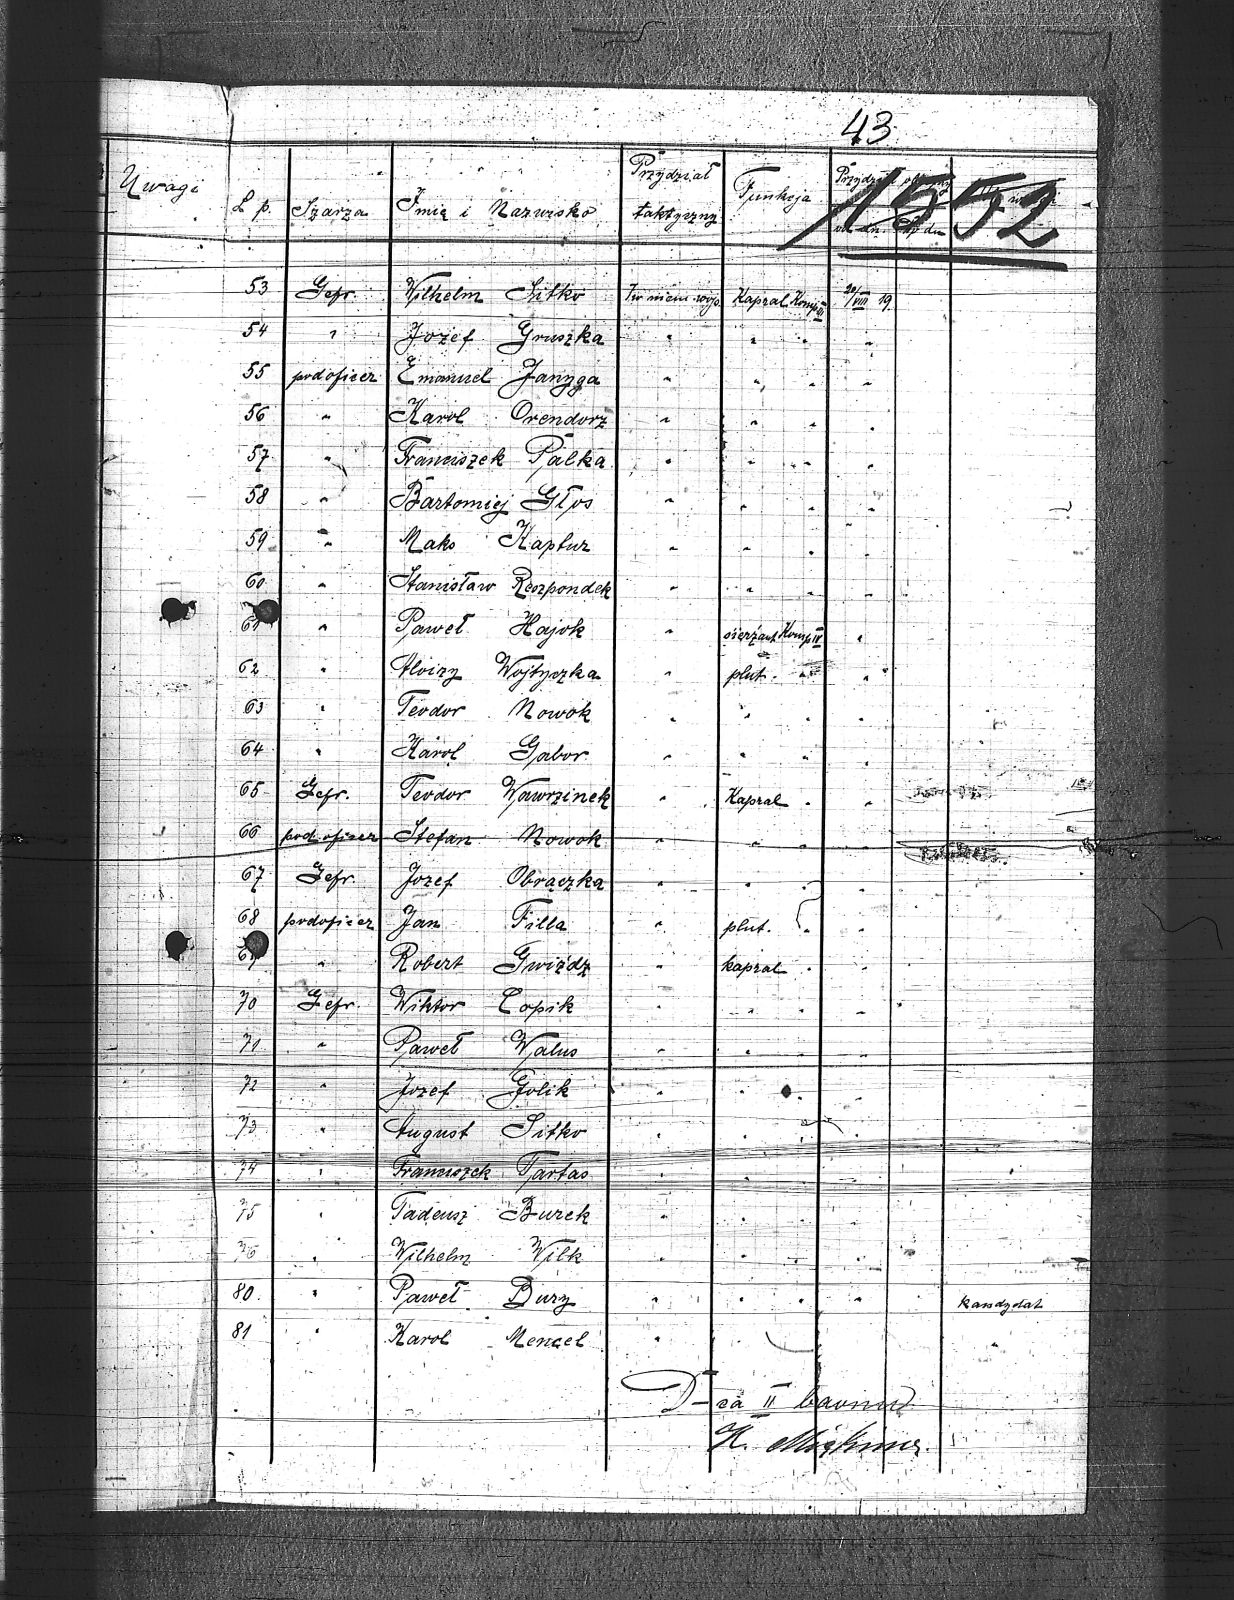 43
1552
Uwagi
L. p. Szarża Imię i Nazwisko Przydział taktyczny Funkcja
53 Gefr. Wilhelm Sitko Kapral Komp III 20/VIII 19.
54 " Jozef Gruszka " " " "
55 podoficer Emanuel Janyga " " " "
56 " Karol Orendorz " " " "
57 " Franciszek Palka " " " "
58 " Bartomiej Głos " " " "
59 " Maks Kaptur " " " "
60 " Stanisław Rozpondek " " " "
61 " Paweł Hajok " sierżant Komp IV "
62 " Aloizy Wojtyczka " plut. " "
63 " Teodor Nowok " " " "
64 " Karol Gabor " " " "
65 Gefr. Teodor Wawrzinek " Kapral " "
66 podoficer Stefan Nowok " " " "
67 Gefr. Jozef Obrączka " " " "
68 podoficer Jan Filla " plut. " "
69 " Robert Gwiżdz " kapral " "
70 Gefr. Wiktor Copik " " " "
71 " Paweł Walus " " " "
72 " Jozef Golik " " " "
73 " August Sitko " " " "
74 " Franciszek Tartas " " " "
75 " Tadeusz Burek " " " "
76 " Wilhelm Wilk " " " "
80. " Paweł Bury " " " " kandydat
81 " Karol Mencel " "
D-ca II baonu
K.